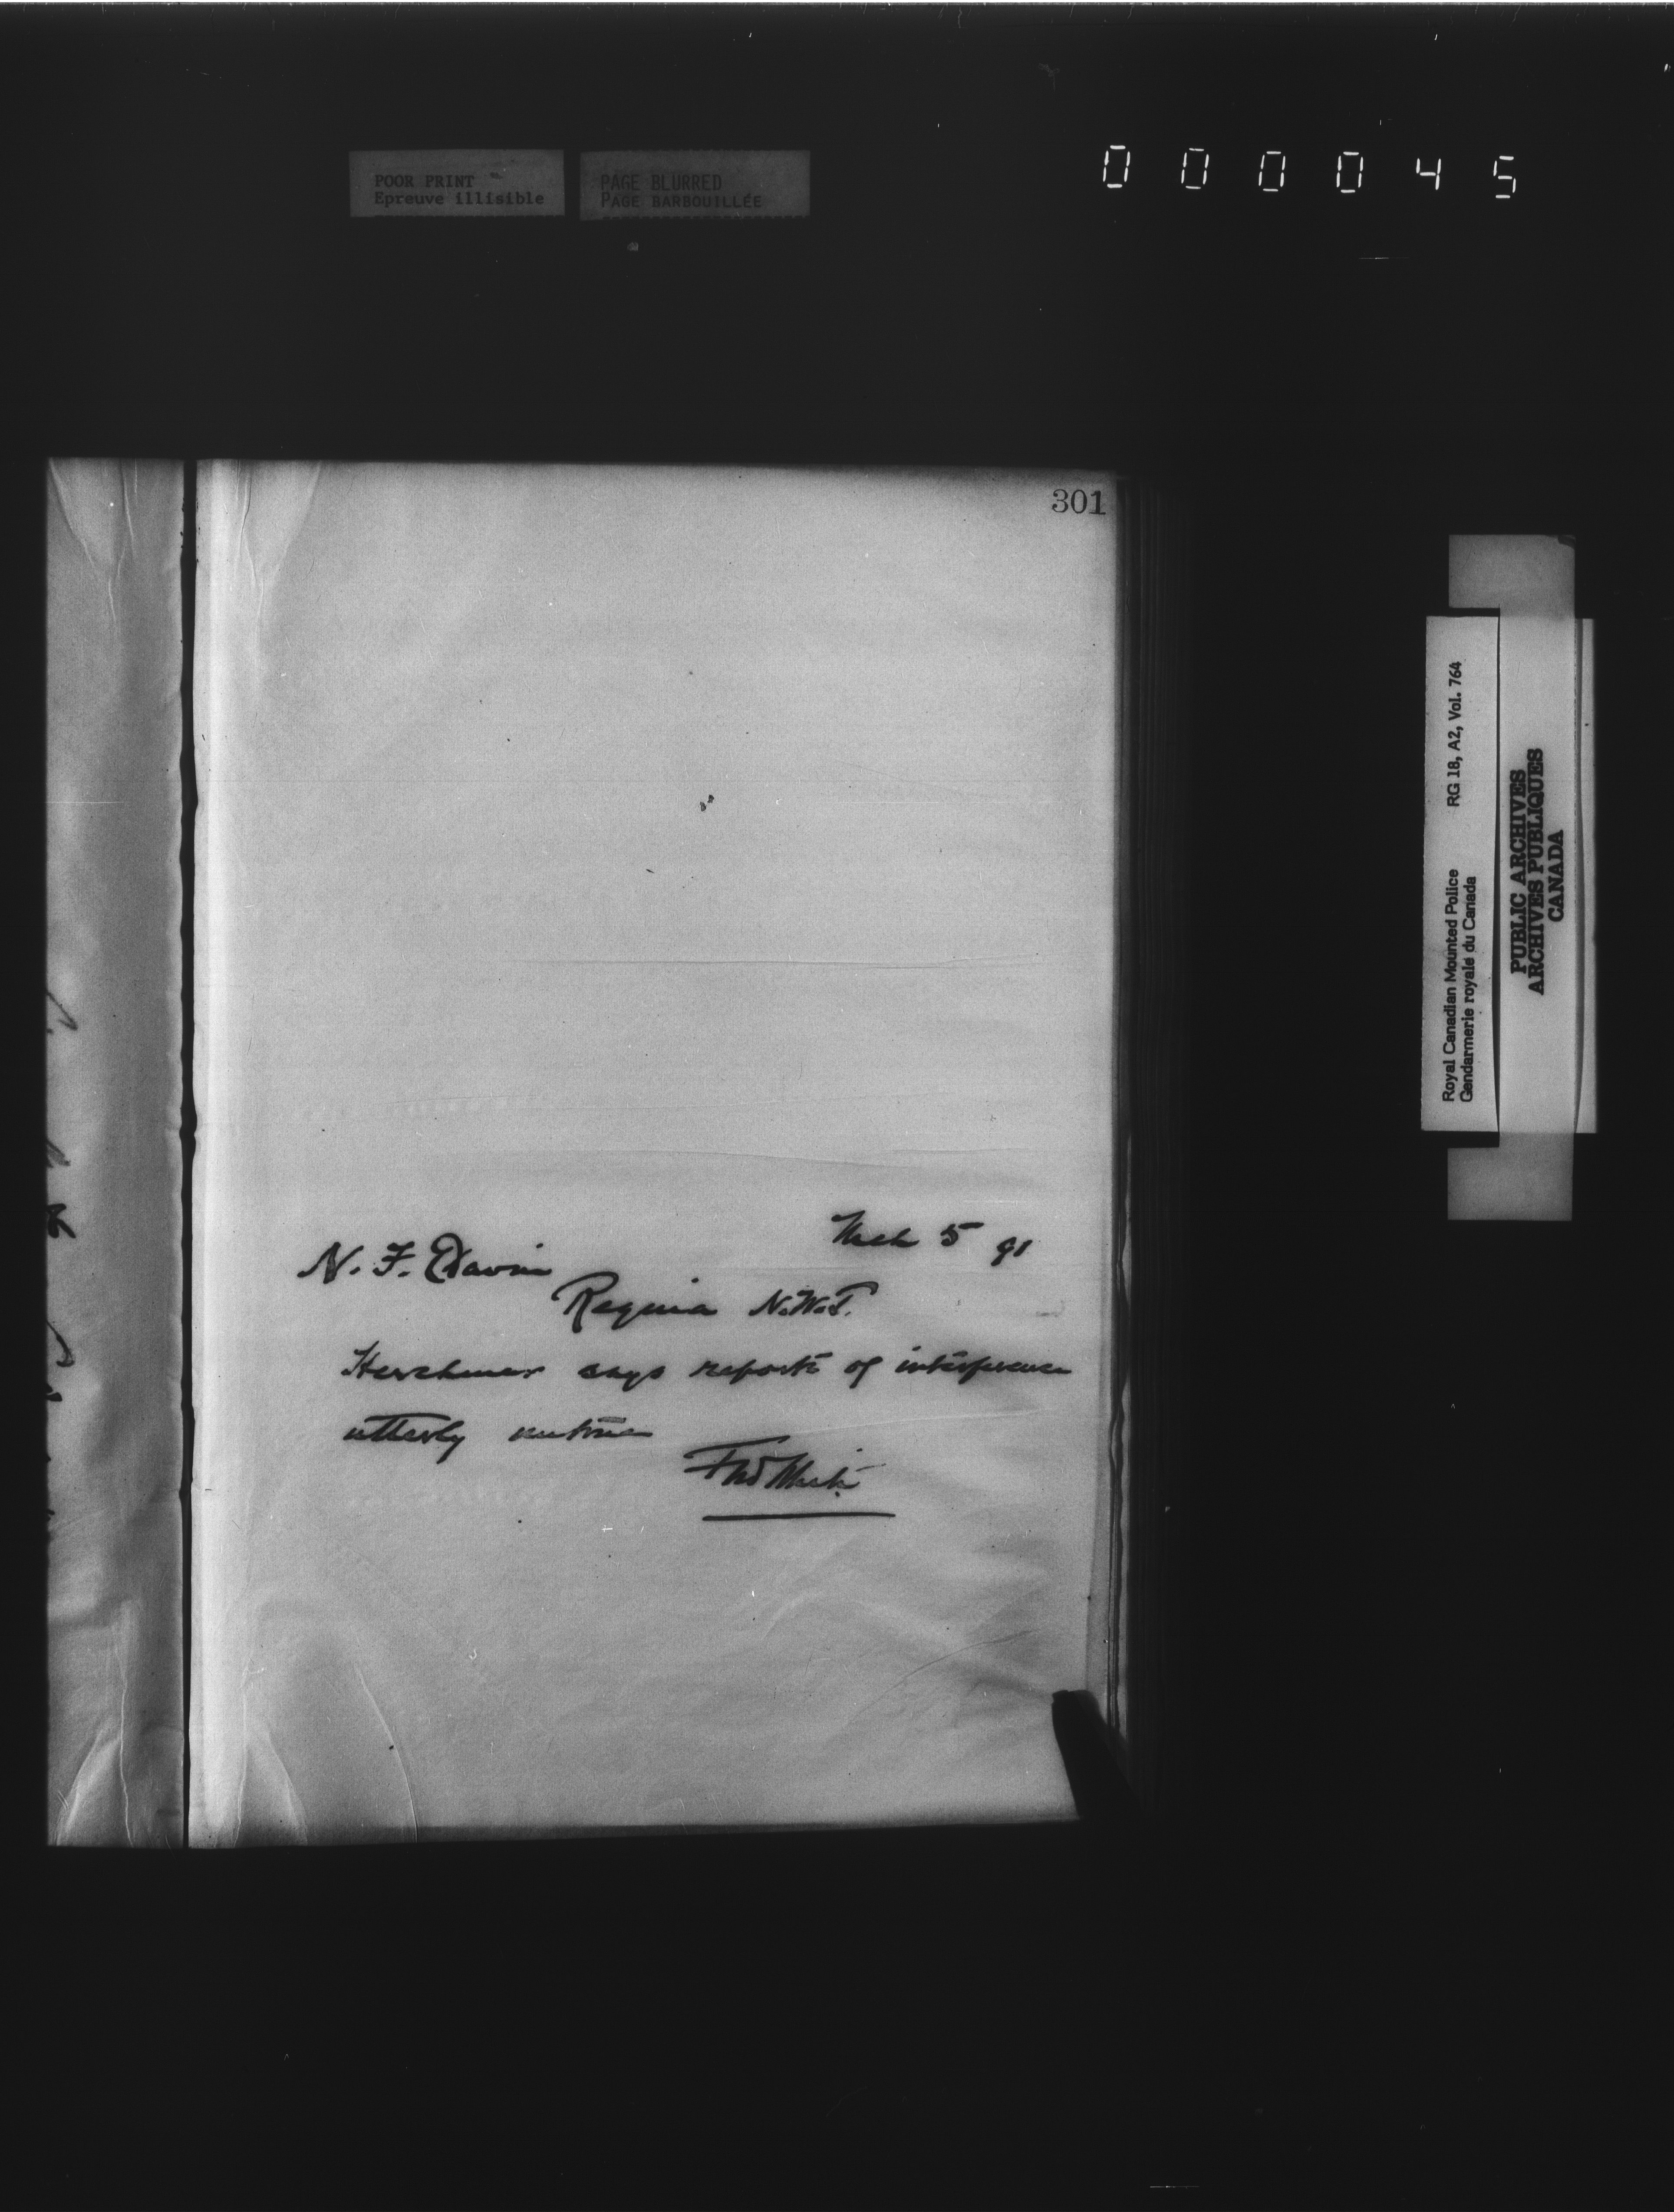 POOR PRINT
Epreuve illisible
PAGE BLURRED
PAGE BARBOUILLÉE
000045
301
Mch 5 91
N. F. Davin
Regina N.W.T.
Herchmer says reports of interference
utterly untrue
Fred White
Royal Canadian Mounted Police RG 18, A2, Vol. 764
Gendarmerie royale du Canada
PUBLIC ARCHIVES
ARCHIVES PUBLIQUES
CANADA